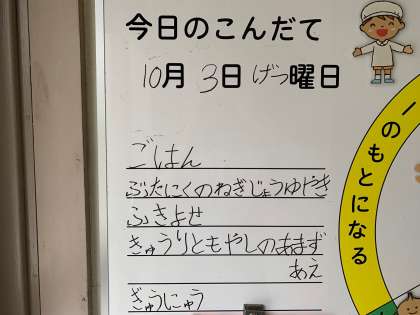 今日のこんだて
10月 3日 げつ曜日
ごはん
ぶたにくのねぎじょうゆやき
ふきよせ
きゅうりともやしのあまず
あえ
ぎゅうにゅう
のもとになる